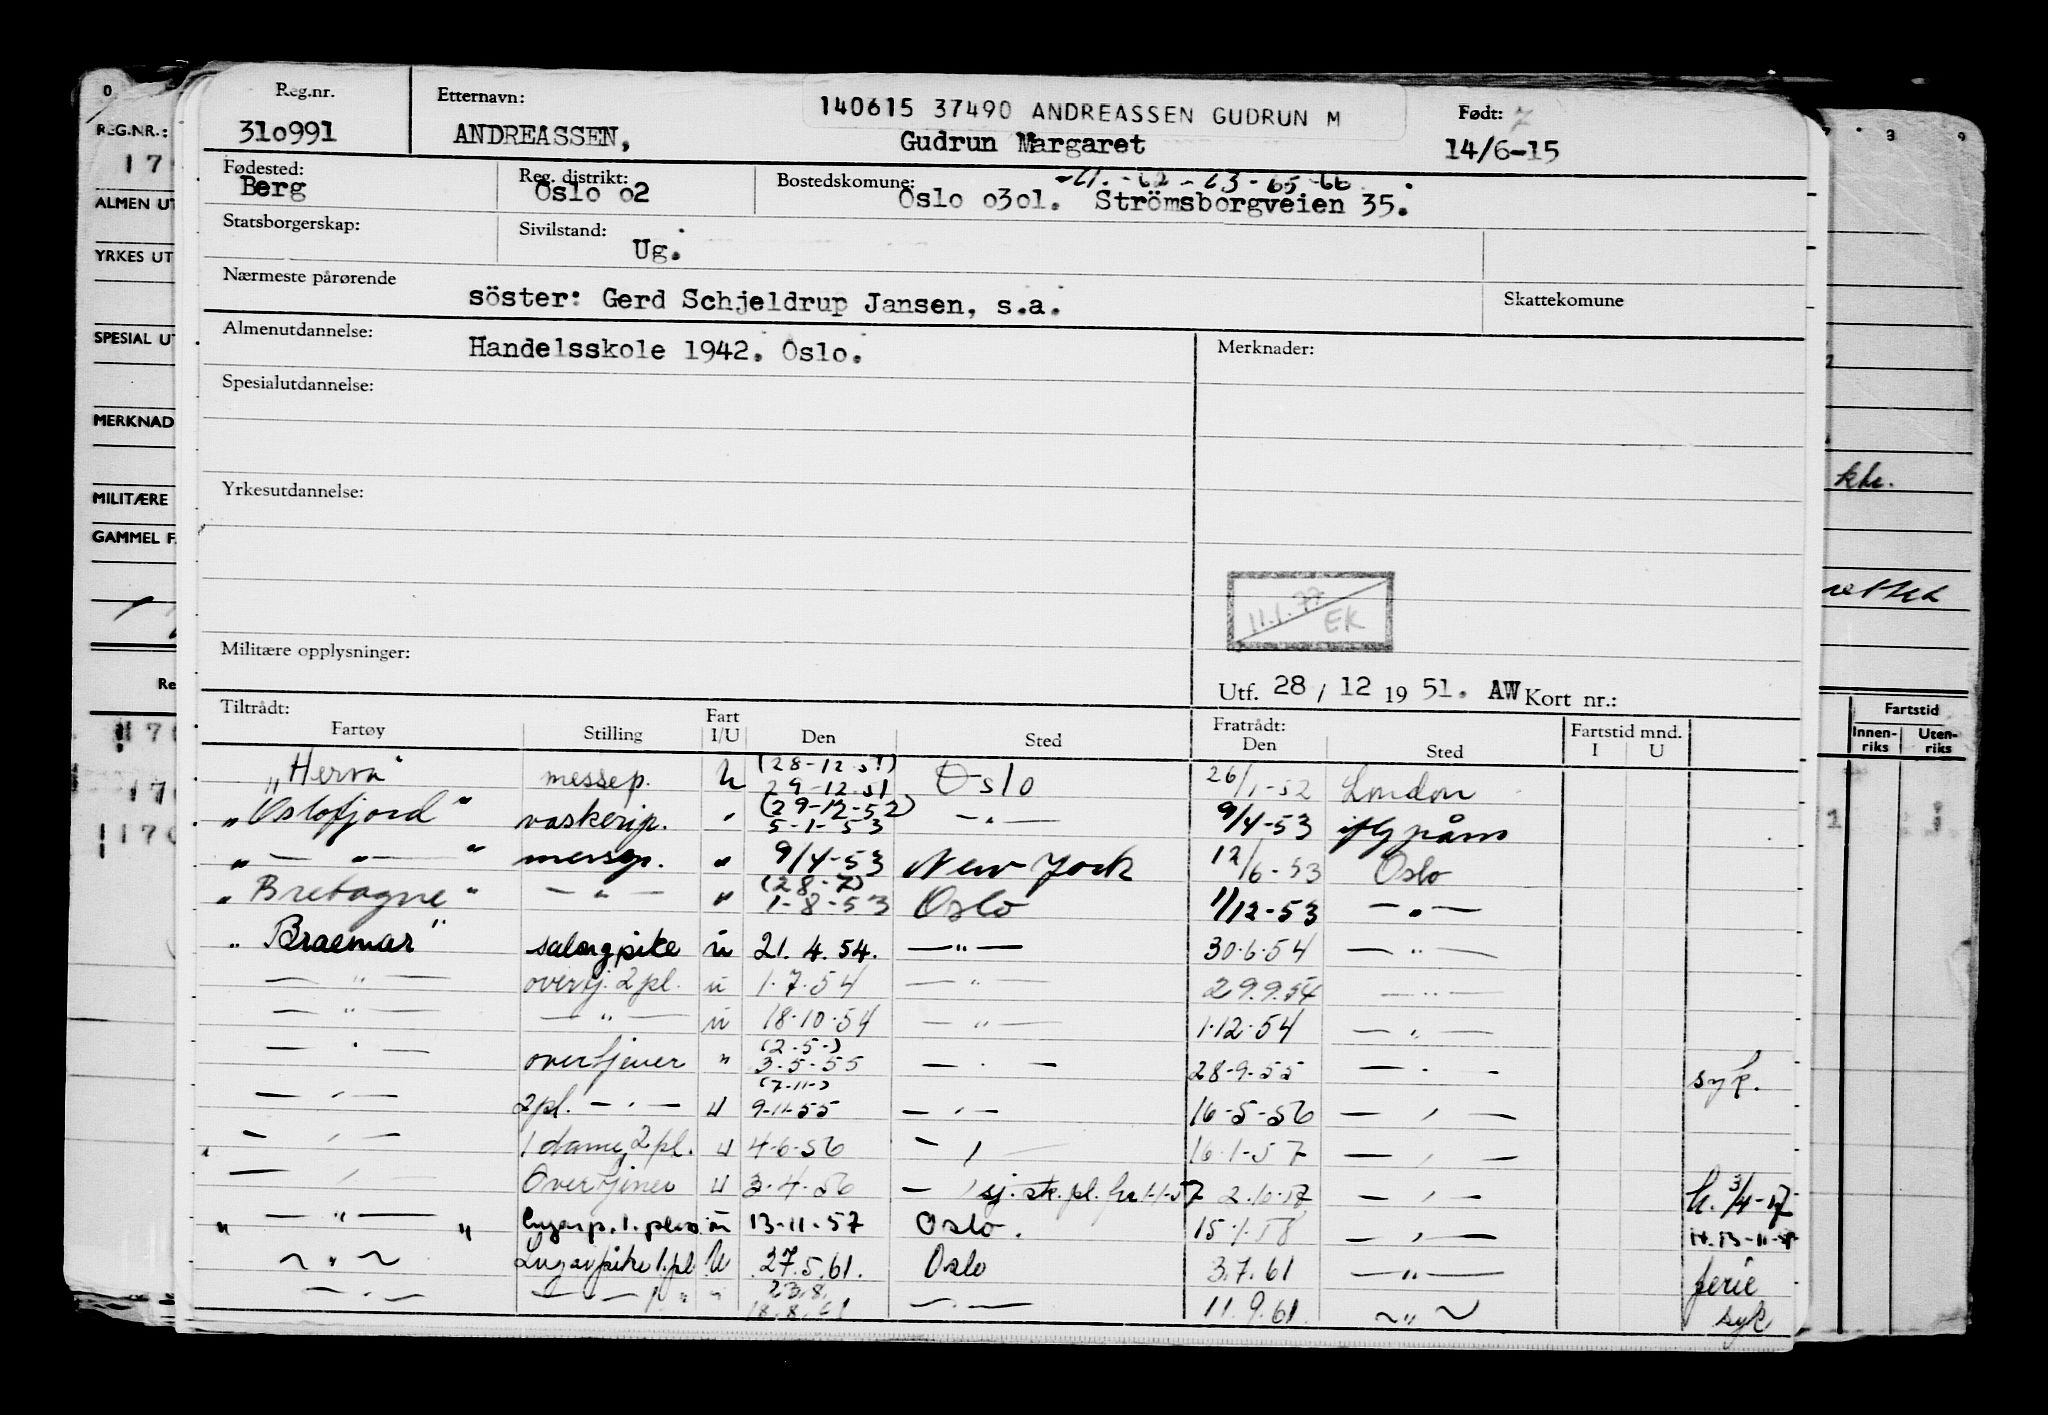 Reg.nr. Etternavn: 140615 37490 ANDREASSEN GUDRUN M Født:
310991 ANDREASSEN, Gudrun Margaret 14/6-15
Fødested: Reg. distrikt: Bostedskomune: -61. -62 - 63 - 65 -66
Berg Oslo 02 Oslo 0301. Strömsborgveien 35.
Statsborgerskap: Sivilstand:
Ug.
Nærmeste pårørende
söster: Gerd Schjeldrup Jansen, s.a. Skattekomune
Almenutdannelse: Merknader:
Handelsskole 1942. Oslo.
Spesialutdannelse:
Yrkesutdannelse:
11.1.77 EK
Militære opplysninger:
Utf. 28 / 12 19 51. AW Kort nr.:
Tiltrådt: Fratrådt:
Fartøy Stilling Fart I/U Den Sted Den Sted Fartstid mnd. I U
"Herva" messep. U (28-12-51) 29-12-51 Oslo 26/1-52 London
"Oslofjord" vaskerip. " (29-12-52) 5-1-53 — " — 9/4-53 iflg påm
" — " — " messep. " 9/4-53 New York 12/6-53 Oslo
"Bretagne" — " — " (28-7) 1-8-53 Oslo 1/12-53 — " —
"Braemar" salongpike u 21.4.54. — " — 30.6.54 — " —
— " — overtj. 2 pl. u 1.7.54 — " — 29.9.54 — " —
— " — — " — u 18.10.54 — " — 1.12.54 — " —
— " — overtjener " (2.5-) 3-5-55 — " — 28-9-55 — " — syk.
— " — 2pl. — " — u (7-11-) 9-11-55 — " — 16-5-56 — " —
— " — 1 dame 2 pl. u 4-6-56 — " 16-1-57 — " —
— " — Overtjener u 3-4-56 — " sj. sk. pl. fra 1-1-57 2.10.57 — " — h. 3/4-57
" — " — " Lugarp. 1. plass u 13-11-57 Oslo. 15.1.58 — " —
— " — Lugarpike 1.pl U 27.5.61. Oslo 3.7.61 — " — ferie
— " — — " — " 23.8. 18.8.61 — " — 11.9.61. — " — syk.
O
REG.NR.:
17
ALMEN UT
YRKES UT
SPESIAL UT
MERKNAD
MILITÆRE
GAMMEL F
Re
3 9
khr.
Fartstid
Innen-riks Uten-riks